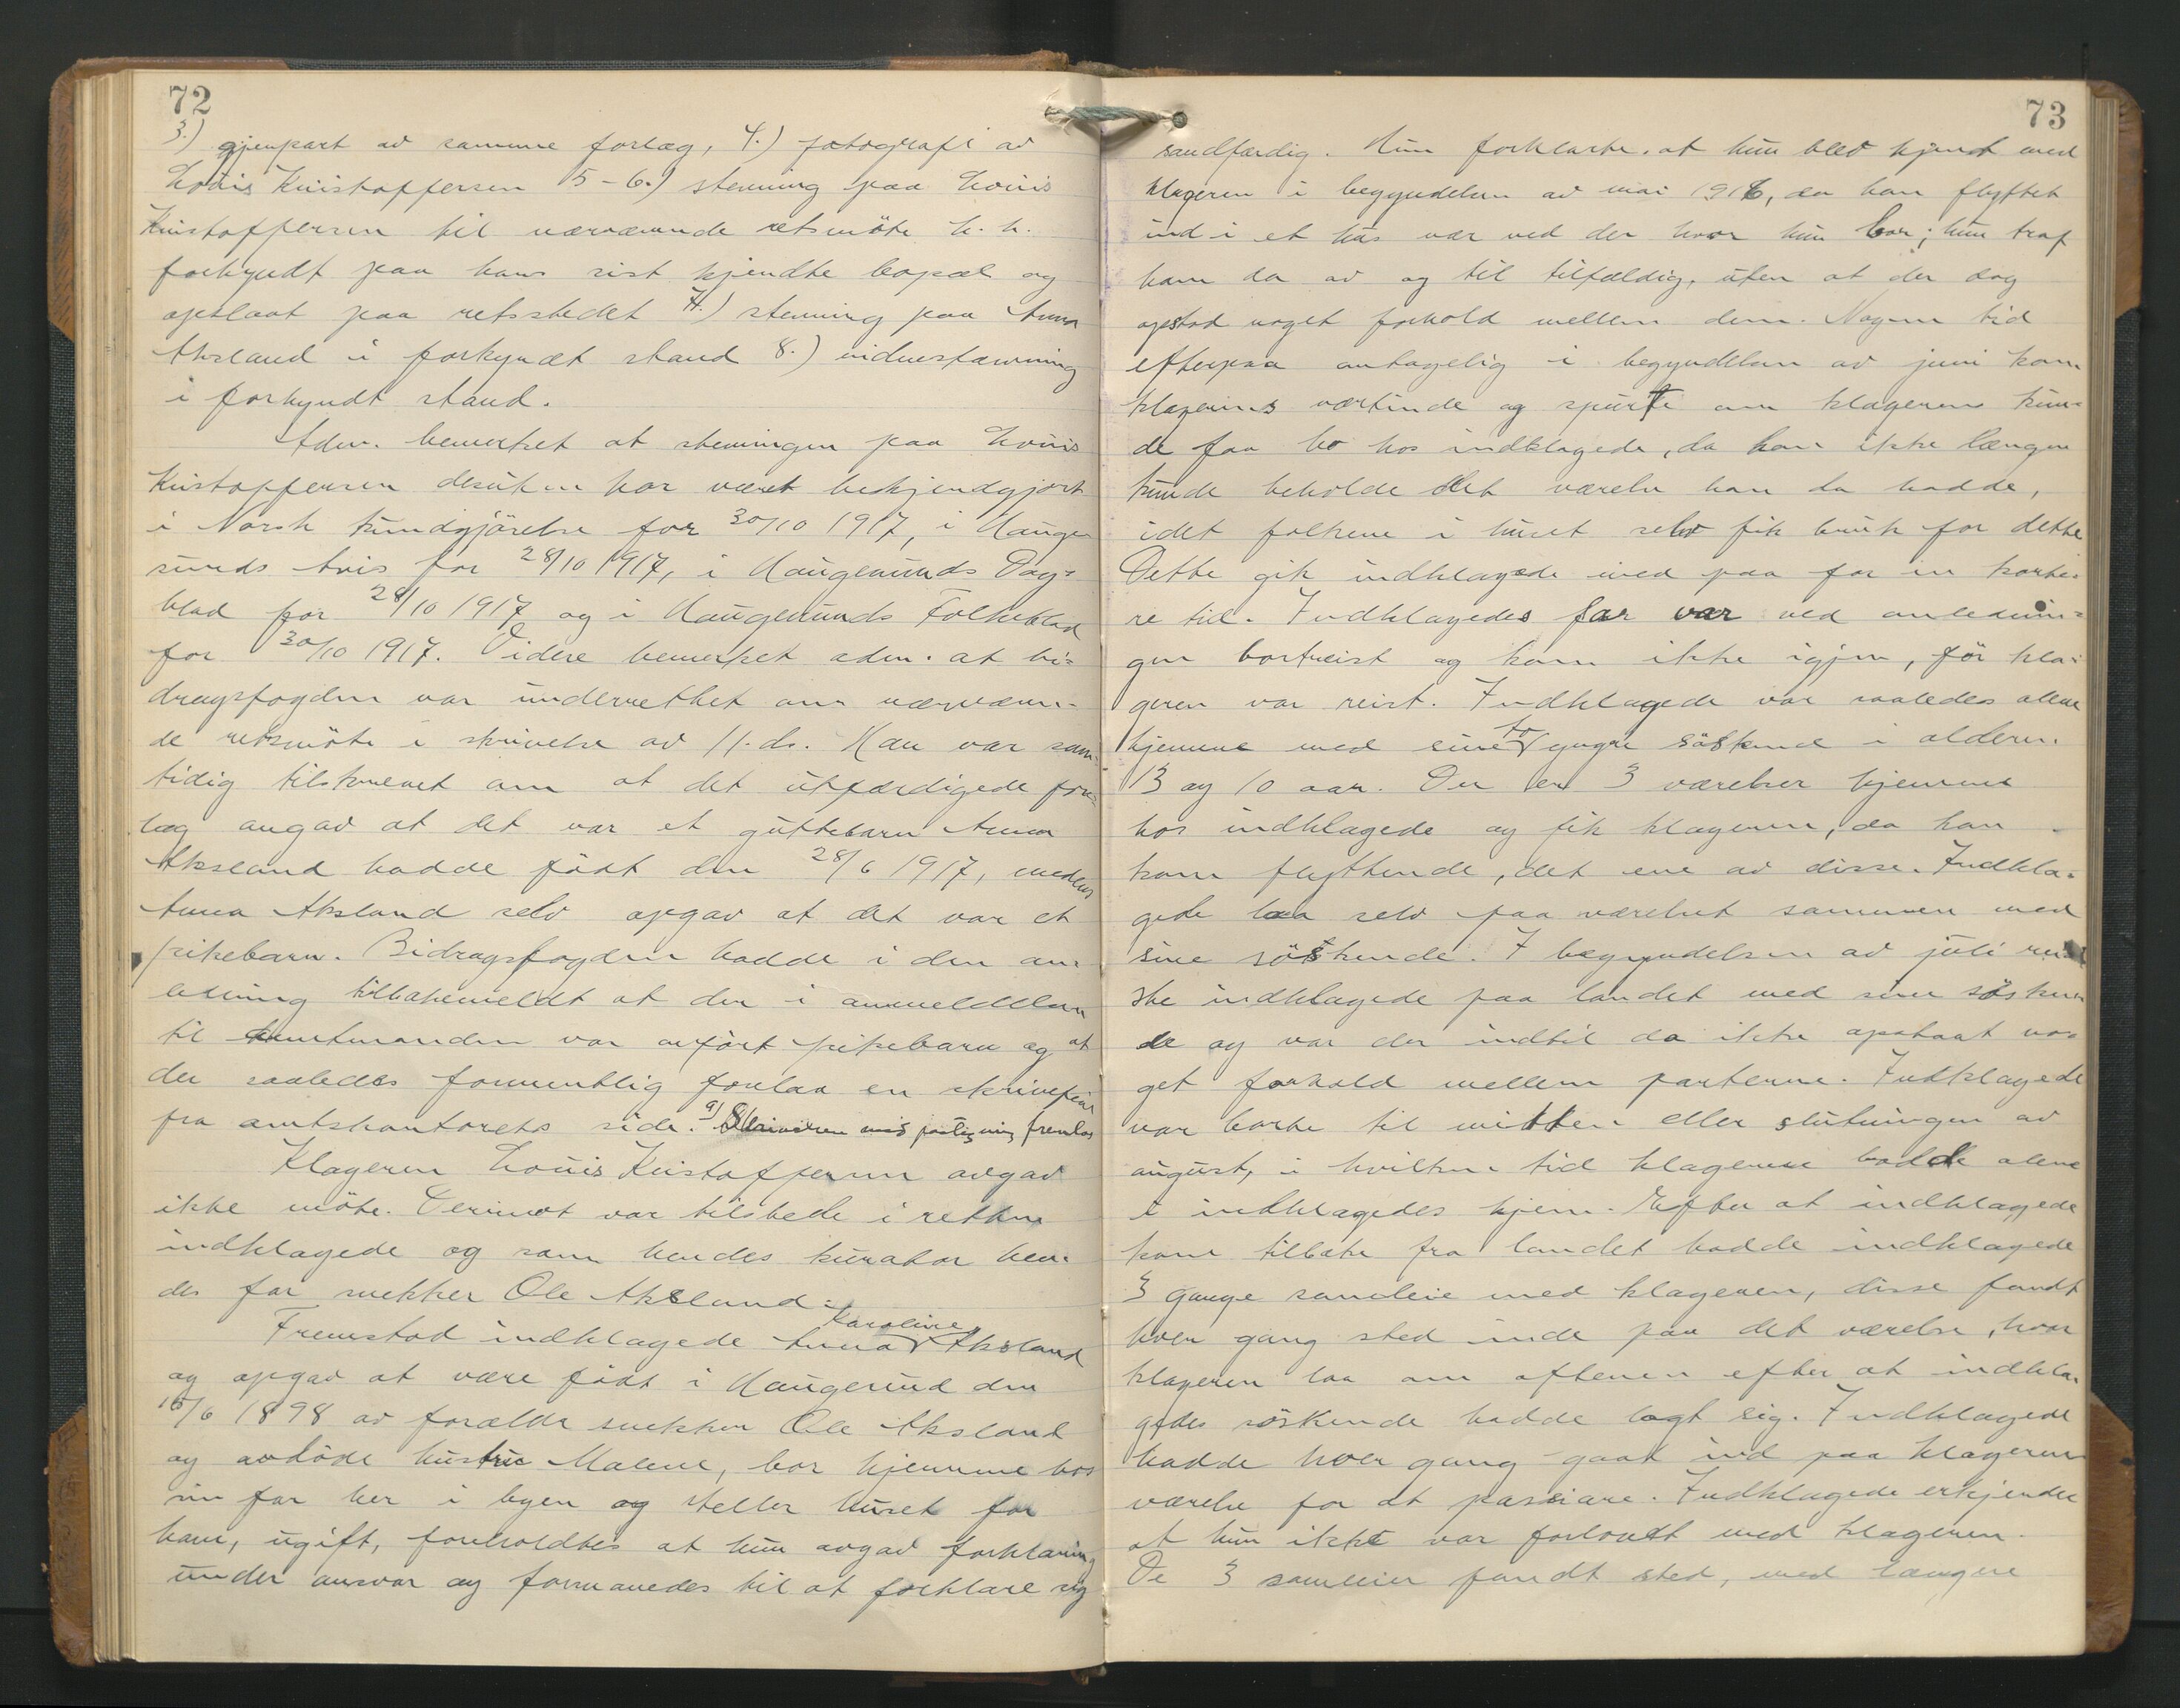 72
3.) gjenpart av samme forlæg, 4.) fotografi av
Louis Kristoffersen 5-6.) stevning paa Louis
Kristoffersen til nærværende retsmöte h.h.
forkyndt paa hans sist kjendte bopæl og
opslaat paa retsstedet 7.) stevning paa Anna
Aksland i forkyndt stand 8.) vidnestævning
i forkyndt stand.
Adm. bemerket at stevningen paa Louis
Kristoffersen desuten har været bekjendgjort
i Norsk kundgjörelse for 30/10 1917, i Hauge
sunds Avis for 28/10 1917, i Haugesunds Dag=
blad for 29/10 1917 og i Haugesunds Folkeblad
for 30/10 1917. Videre bemerket adm. at bi=
dragsfogden var underrettet om nærværen-
de retsmöte i skrivelse av 11. ds. Han var sam=
tidig tilskrevet om at det utfærdigede for=
læg angav at det var et guttebarn Anna
Aksland hadde födt den 28/6 1917, medens
Anna Aksland selv opgav at det var et
pikebarn. Bidragsfogden hadde i den an-
ledning tilbakemeldt at der i anmeldelsen
til amtmanden var anfört pikebarn og at
der saaledes formentlig forelaa en skrivefeil
fra amtskontorets side. 9) Skrivelsen med paategning fremlas
Klageren Louis Kristoffersen avgav
ikke möte. Derimot var tilstede i retten
indklagede og som hendes kurator hen-
des far snekker Ole Aksland.
Karoline
Fremstod indklagede Anna Aksland
og opgav at være födt i Haugesund den
16/6 1898 av forældre snekker Ole Aksland
og avdöde hustru Malene, bor hjemme hos
sin far her i byen og steller huset for
ham, ugift, foreholdtes at hun avgav forklaring
under ansvar og formanedes til at forklare sig
73
sandfærdig. Hun forklarte, at hun blev kjendt med
klageren i begyndelsen av mai 1916, da han flyttet
ind i et hus nær ved der hvor hun bor; hun traf
ham da av og til tilfældig, uten at der dog
opstod noget forhold mellem dem. Nogen tid
efterpaa antagelig i begyndelsen av juni kom
klagerens værtinde og spurte om klageren kun-
de faa bo hos indklagede, da han ikke længere
kunde beholde det værelse han da hadde,
idet folkene i huset selv fik bruk for dette
Dette gik indklagede ind paa for en korte-
re tid. Indklagedes far var ved anlednin=
gen bortreist og kom ikke igjen, för kla-
geren var reist. Indklagede var saaledes alene
to
hjemme med sine yngre söskende i alderen
13 og 10 aar. Der er 3 værelser hjemme
hos indklagede og fik klageren, da han
kom flyttende, det ene av disse. Indkla-
gede laa selv paa værelset sammen med
sine söskende. I begyndelsen av juli rei
ste indklagede paa landet med sine sösken
de og var der indtil da ikke opstaat no-
get forhold mellem parterne. Indklagede
var borte til midten eller slutningen av
august, i hvilken tid klageren bodde alene
i indklagedes hjem. Efter at indklagede
kom tilbake fra landet hadde indklagede
3 gange samleie med klageren, disse fandt
hver gang sted inde paa det værelse, hvor
klageren laa om aftenen efter at indkla-
gedes söskende hadde lagt sig. Indklagede
hadde hver gang gaat ind paa klagerens
værelse for at passiare. Indklagede erkjender
at hun ikke var forlovet med klageren.
De 3 samleier fandt sted, med længere